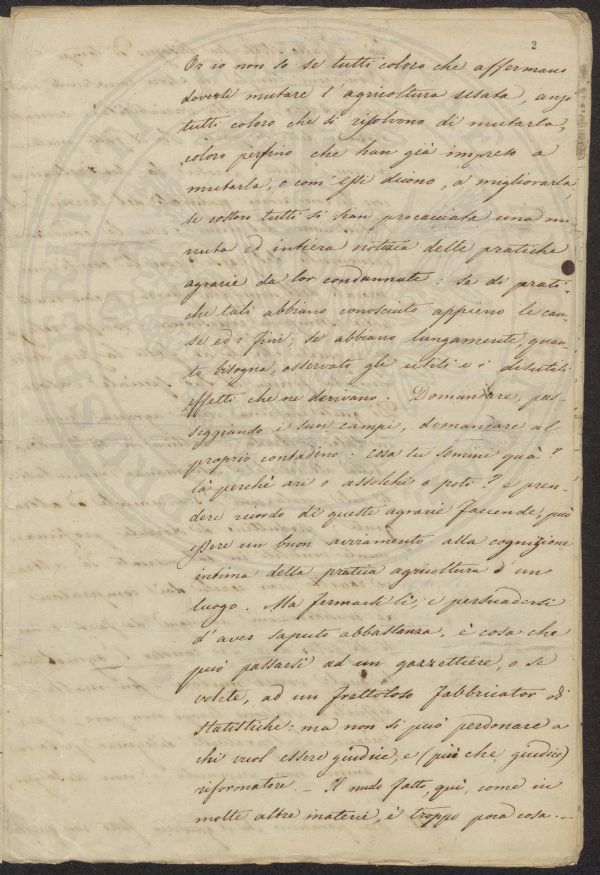 2
Or io non so se tutti coloro che affermano
doversi mutare l'agricoltura usata, anzi
tutti coloro che si risolvono di mutarla,
coloro perfino che han già impreso a
mutarla, o com'essi dicono, a migliorarla,
se costoro tutti si sian procacciata una mi
nuta ed intiera notizia delle pratiche
agrarie da lor condannate: se di prati-
che tali abbiano conosciuto appieno le cau-
se ed i fini; se abbiano lungamente, quan
to bisogna, osservato gli utili e i disutili
effetti che ne derivano. Domandare, pas-
seggiando i suoi campi, domandare al
proprio contadino: cosa tu semini quà?
là perchè ari o assolchi o poti? e pren-
dere ricordo di queste agrarie faccende, può
essere un buon avviamento alla cognizione
intima della pratica agricoltura d'un
luogo. Ma fermarsi lì, e persuadersi
d'aver saputo abbastanza, è cosa che
può passarsi ad un gazzettiere, o se
volete, ad un frettoloso fabbricator di
statistiche: ma non si può perdonare a
chi vuol essere giudice, e (più che giudice)
riformatore. _ Il nudo fatto, quì, come in
molte altre materie, è troppo poca cosa._